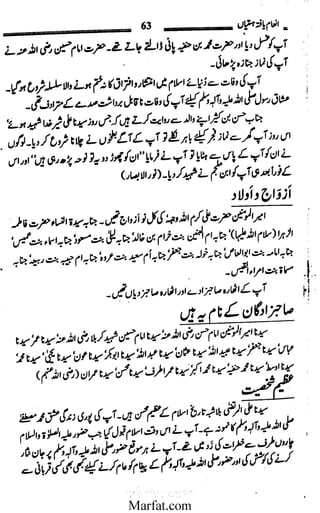 انعام یافتہ ہستیاں 63
آپ کو غسل دیا اور حضرت محمد بن حنفیہ پانی ڈالتے جاتے تھے۔ حضرت امام حسین رضی اللہ عنہ نے
آپ کی نماز جنازہ پڑھائی۔
آپ کی وفات سے دنیائے اسلام میں انتشار و افتراق کا ختم نہ ہونے والا سلسلہ شروع ہو گیا۔
عشاق رسول صلی اللہ علیہ وآلہ وسلم کیلئے آپ کی وفات ناقابل برداشت صدمے کے مترادف تھی۔
جناب حسن بن کثیر اپنے والد سے روایت کرتے ہیں کہ جس روز سیدنا علی شیر خدا شہید ہوئے'
اس روز آپ گھر سے نماز فجر کیلئے باہر نکلے تو آپ کے آگے بطخوں نے چلانا شروع کر دیا۔ لوگوں
نے ان کو آپ کے پاس سے ہٹایا تو آپ نے فرمایا "ان کو چھوڑ دو یہ تو نوحہ پڑھ رہی ہیں" اور اس
کے فوراً بعد ہی آپ کو ابن ملجم نے شہید کر دیا۔ (نور الابصار)
ازواج و اولاد
امیر المومنین حضرت علی کرم اللہ وجہہ کی کل نو ازواج تھیں۔ جناب سیدۃ النساء حضرت فاطمہ
الزہرا (سلام اللہ علیہا)' جناب ام البنین بنت حرام بن خالد' جناب لیلیٰ بنت مسعود' جناب اسماء بنت عمیس'
جناب امامہ بنت ابوالعاص' جناب خولہ بنت جعفر' جناب ام سعید بنت عروہ' جناب ام حبیبہ بنت ربیعہ' جناب
مسماۃ بنت امراء القیس۔
آپ کے اٹھارہ صاحبزادے اور اٹھارہ صاحبزادیاں تھیں۔
صاحبزادگان کے نام یہ ہیں
سیدنا امیر المومنین امام حسن رضی اللہ عنہ' سیدنا امام حسین شہید کربلا رضی اللہ عنہ' سیدنا عمر' سیدنا
عباس' سیدنا جعفر' سیدنا عبید اللہ' سیدنا عثمان' سیدنا عبداللہ' سیدنا ابوبکر' سیدنا عون' سیدنا یحییٰ' سیدنا محمد
اوسط' سیدنا محمد حنفیہ' سیدنا محمد اکبر' سیدنا عمر اطرف' سیدنا محسن' سیدنا عمران (رضی اللہ عنہم)
عظیم شخصیت
سیدنا علی المرتضیٰ بلاشبہ تاریخ اسلام کے عظیم محسن ہیں۔ آپ کی پوری زندگی عشق محمد مصطفےٰ
صلی اللہ علیہ وآلہ وسلم کا نمونہ ہے۔ آپ نے اس وقت اسلام قبول کیا جب حضور علیہ الصلوٰۃ والسلام
چاروں طرف سے خطرات کی زد میں تھے۔ آپ نے ہر موقع حضور صلی اللہ علیہ وآلہ وسلم پر جان نثار
کرنے کی کوشش کی اور حضور صلی اللہ علیہ وآلہ وسلم کے پیغام کو عام کرنے کیلئے کبھی بھی کسی قربانی سے
Marfat.com